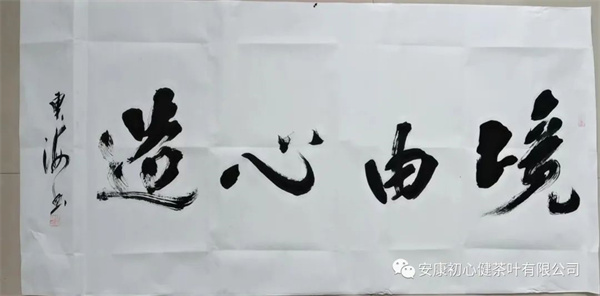 境由心造
海书
安康初心健茶叶有限公司